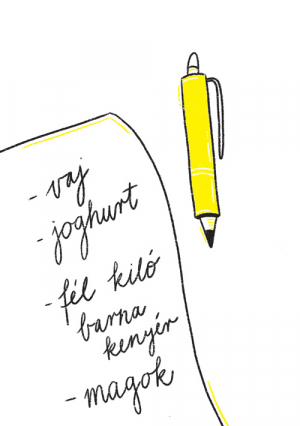 - vaj
- joghurt
- fél kiló
barna
kenyér
- magok